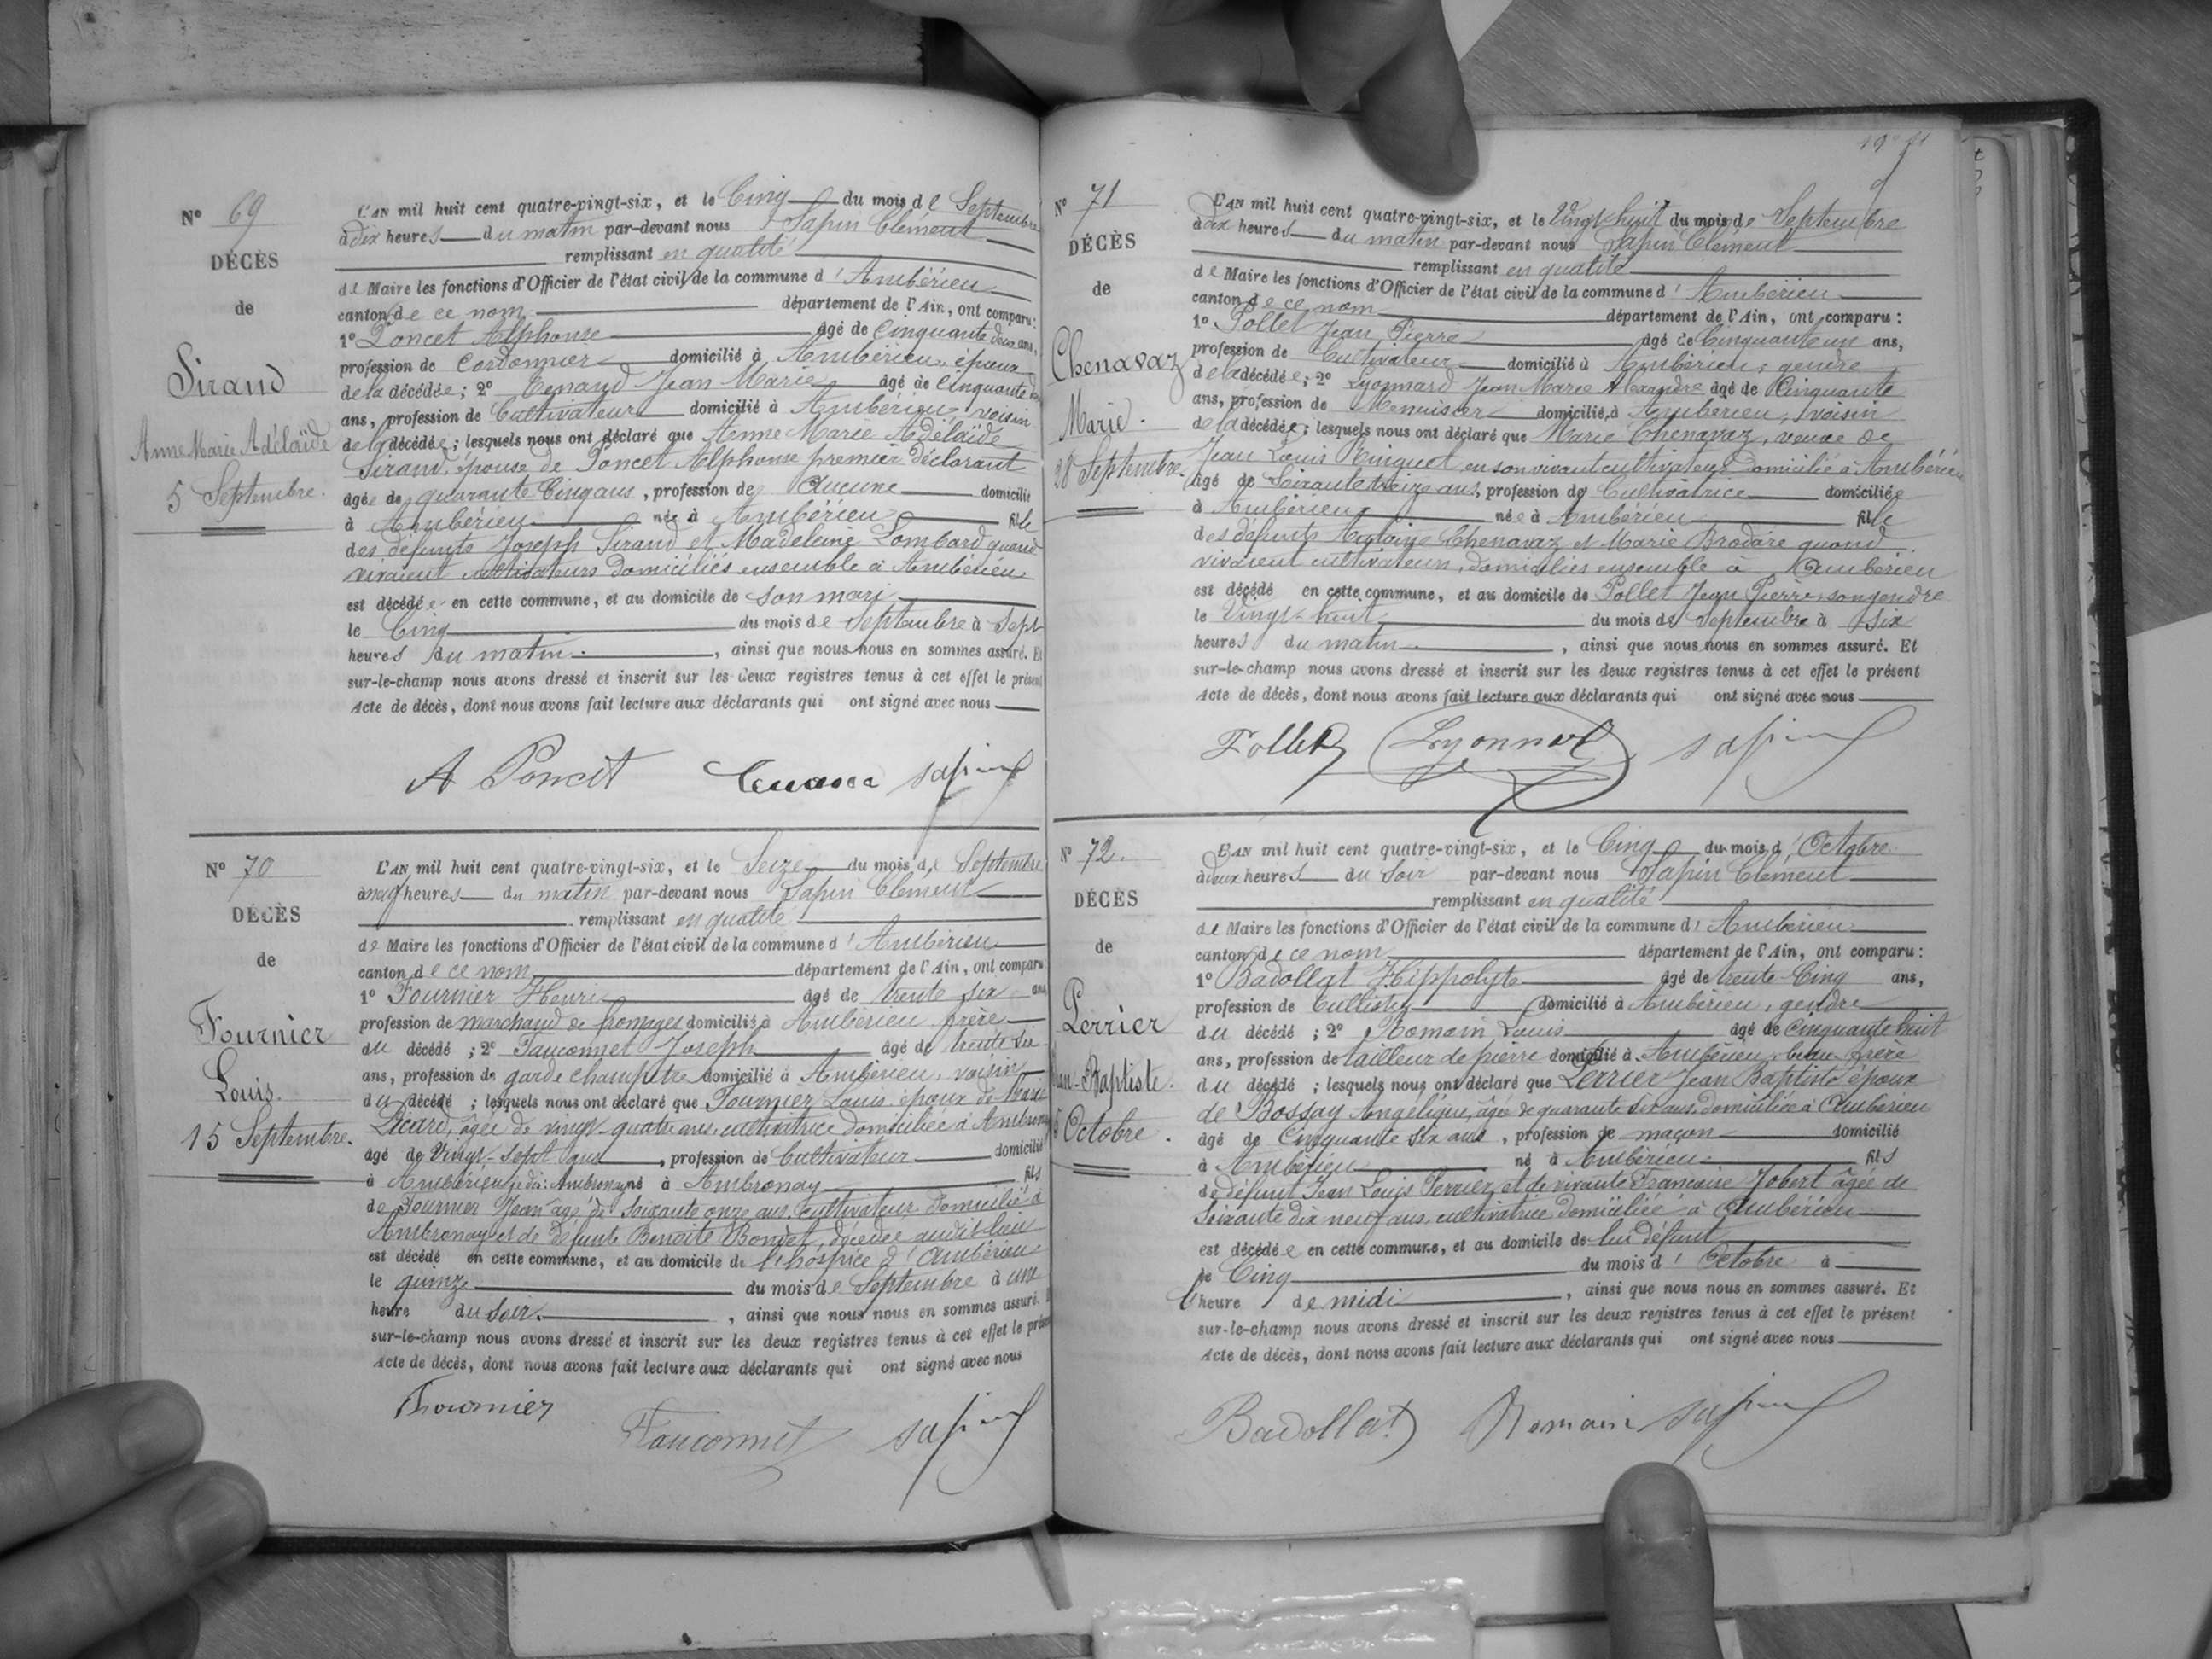 Nº 69
DÉCÈS
de
Sirand
Anne Marie Adélaïde
5 Septembre.
L'AN mil huit cent quatre-vingt-six, et le Cinq du mois de Septembre
à dix heures du matin par-devant nous Sapin Clément
remplissant en qualité
de Maire les fonctions d'Officier de l'état civil de la commune d'Ambérieu
canton de ce nom département de l'Ain, ont comparu:
1º Poncet Alphonse âgé de Cinquante deux ans,
profession de Cordonnier domicilié à Ambérieu, époux
de la décédée; 2º Tenand Jean Marie âgé de Cinquante
ans, profession de Cultivateur domicilié à Ambérieu, voisin
de la décédée; lesquels nous ont déclaré que Anne Marie Adélaïde
Sirand, épouse de Poncet Alphonse premier déclarant
âgée de quarante Cinq ans, profession de aucune domicilié
à Ambérieu née à Ambérieu fille
des défunts Joseph Sirand et Madeleine Lombard quand
vivaient cultivateurs domiciliés ensemble à Ambérieu
est décédée en cette commune, et au domicile de son mari
le Cinq du mois de Septembre à Sept
heures du matin. , ainsi que nous nous en sommes assuré. Et
sur-le-champ nous avons dressé et inscrit sur les deux registres tenus à cet effet le présent
Acte de décès, dont nous avons fait lecture aux déclarants qui ont signé avec nous
A Poncet Sapin
Nº 70
DÉCÈS
de
Fournier
Louis.
15 Septembre.
L'AN mil huit cent quatre-vingt-six, et le Seize du mois de Septembre
à neuf heures du matin par-devant nous Sapin Clément
remplissant en qualité
de Maire les fonctions d'Officier de l'état civil de la commune d'Ambérieu
canton de ce nom département de l'Ain, ont comparu
1º Fournier Henri âgé de trente six ans
profession de marchand de fromages domicilié à Ambérieu frère
du décédé; 2º Fauconnet Joseph âgé de trente six
ans, profession de garde champêtre domicilié à Ambérieu, voisin
du décédé; lesquels nous ont déclaré que Fournier Louis époux de Marie
Dicard, âgée de vingt-quatre ans, cultivatrice domiciliée à Ambronay
âgé de Vingt-Sept ans, profession de Cultivateur domicilié
à Ambronay né à Ambronay fils
de Fournier Jean âgé de Soixante onze ans, cultivateur domicilié à
Ambronay et de défunte Benoite Bondet, décédée audit lieu
est décédé en cette commune, et au domicile de l'hospice d'Ambérieu
le quinze du mois de Septembre à une
heure du soir. , ainsi que nous nous en sommes assuré.
sur-le-champ nous avons dressé et inscrit sur les deux registres tenus à cet effet le présent
Acte de décès, dont nous avons fait lecture aux déclarants qui ont signé avec nous
Fournier Fauconnet Sapin
Nº 71
DÉCÈS
de
Chenavaz
Marie.
28 Septembre.
L'AN mil huit cent quatre-vingt-six, et le Vingt-huit du mois de Septembre
à dix heures du matin par-devant nous Sapin Clément
remplissant en qualité
de Maire les fonctions d'Officier de l'état civil de la commune d'Ambérieu
canton de ce nom département de l'Ain, ont comparu:
1º Pollet Jean Pierre âgé de Cinquante un ans,
profession de Cultivateur domicilié à Ambérieu, gendre
de la décédée; 2º Lyonnard Jean Marie Alexandre âgé de Cinquante
ans, profession de Menuisier domicilié à Ambérieu, voisin
de la décédée; lesquels nous ont déclaré que Marie Chenavaz, veuve de
Jean Louis Ringuet en son vivant cultivateur domicilié à Ambérieu
âgé de Soixante treize ans, profession de Cultivatrice domiciliée
à Ambérieu née à Ambérieu fille
des défunts Antoine Chenavaz et Marie Brodare quand
vivaient cultivateurs, domiciliés ensemble à Ambérieu
est décédé en cette commune, et au domicile de Pollet Jean Pierre, son gendre
le Vingt-huit du mois de Septembre à Six
heures du matin , ainsi que nous nous en sommes assuré. Et
sur-le-champ nous avons dressé et inscrit sur les deux registres tenus à cet effet le présent
Acte de décès, dont nous avons fait lecture aux déclarants qui ont signé avec nous
Pollet Lyonnard Sapin
Nº 72.
DÉCÈS
de
Perrier
Jean-Baptiste.
5 Octobre.
L'AN mil huit cent quatre-vingt-six, et le Cinq du mois d'Octobre
à deux heures du Soir par-devant nous Sapin Clément
remplissant en qualité
de Maire les fonctions d'Officier de l'état civil de la commune d'Ambérieu
canton de ce nom département de l'Ain, ont comparu:
1º Badollat Hippolyte âgé de trente Cinq ans,
profession de domicilié à Ambérieu, gendre
du décédé; 2º Romain Louis âgé de Cinquante huit
ans, profession de tailleur de pierre domicilié à Ambérieu, beau frère
du décédé; lesquels nous ont déclaré que Perrier Jean Baptiste époux
de Bossay Angélique, âgée de quarante six ans, domiciliée à Ambérieu
âgé de Cinquante Six ans, profession de maçon domicilié
à Ambérieu né à Ambérieu fils
de défunt Jean Louis Perrier, et de vivante Françoise Jobert âgée de
Soixante dix neuf ans, cultivatrice domiciliée à Ambérieu
est décédée en cette commune, et au domicile de lui défunt
le Cinq du mois d'Octobre à
l'heure de midi , ainsi que nous nous en sommes assuré. Et
sur-le-champ nous avons dressé et inscrit sur les deux registres tenus à cet effet le présent
Acte de décès, dont nous avons fait lecture aux déclarants qui ont signé avec nous
Badollat Romain Sapin